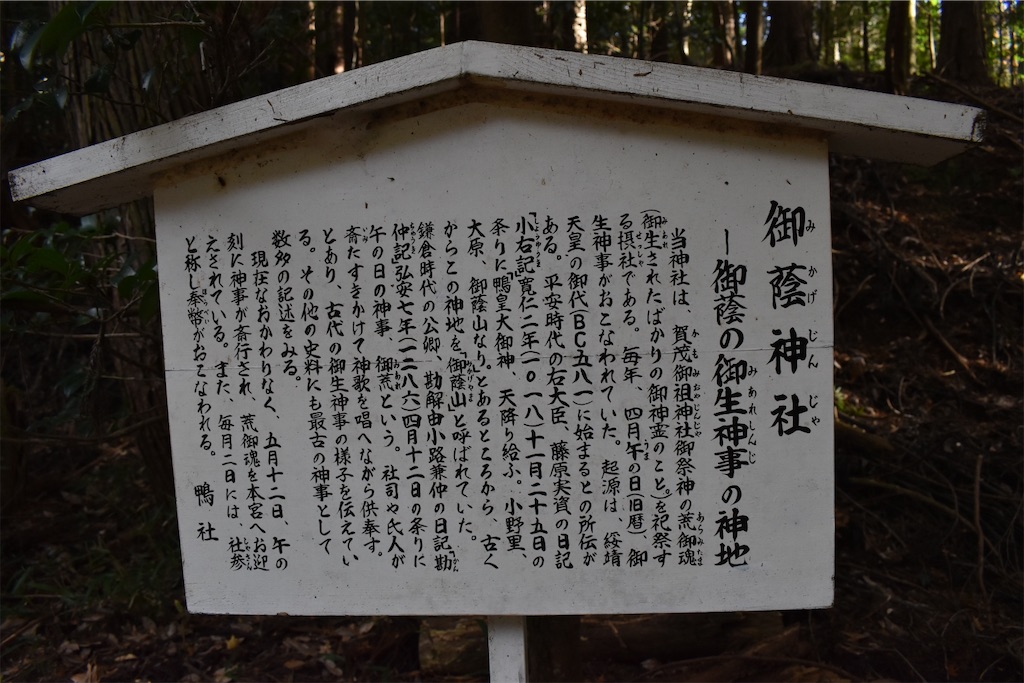 御蔭神社
みかげじんじゃ
―御蔭の御生神事の神地
みあれしんじ
当神社は、賀茂御祖神社御祭神の荒御魂
(御生されたばかりの御神霊のこと。)を祀祭す
る摂社である。毎年、四月午の日(旧暦)、御
生神事がおこなわれていた。起源は、綏靖
天皇の御代(BC五八一)に始まるとの所伝が
ある。平安時代の右大臣、藤原実資の日記
「小右記」寛仁二年(一〇一八)十一月二十五日の
条りに「鴨皇大御神、天降り給ふ。小野里、
大原、御蔭山なり。」とあるところから、古く
からこの神地を「御蔭山」と呼ばれていた。
鎌倉時代の公卿、勘解由小路兼仲の日記「勘
仲記」弘安七年(一二八六)四月十二日の条りに
午の日の神事、御荒という。社司や氏人が
斎たすきかけて神歌を唱へながら供奉す。
とあり、古代の御生神事の様子を伝えてい
る。その他の史料にも最古の神事として
数多の記述をみる。
現在なおかわりなく、五月十二日、午の
刻に神事が斎行され、荒御魂を本宮へお迎
えされている。また、毎月二日には、社参
と称し奉幣がおこなわれる。
鴨社